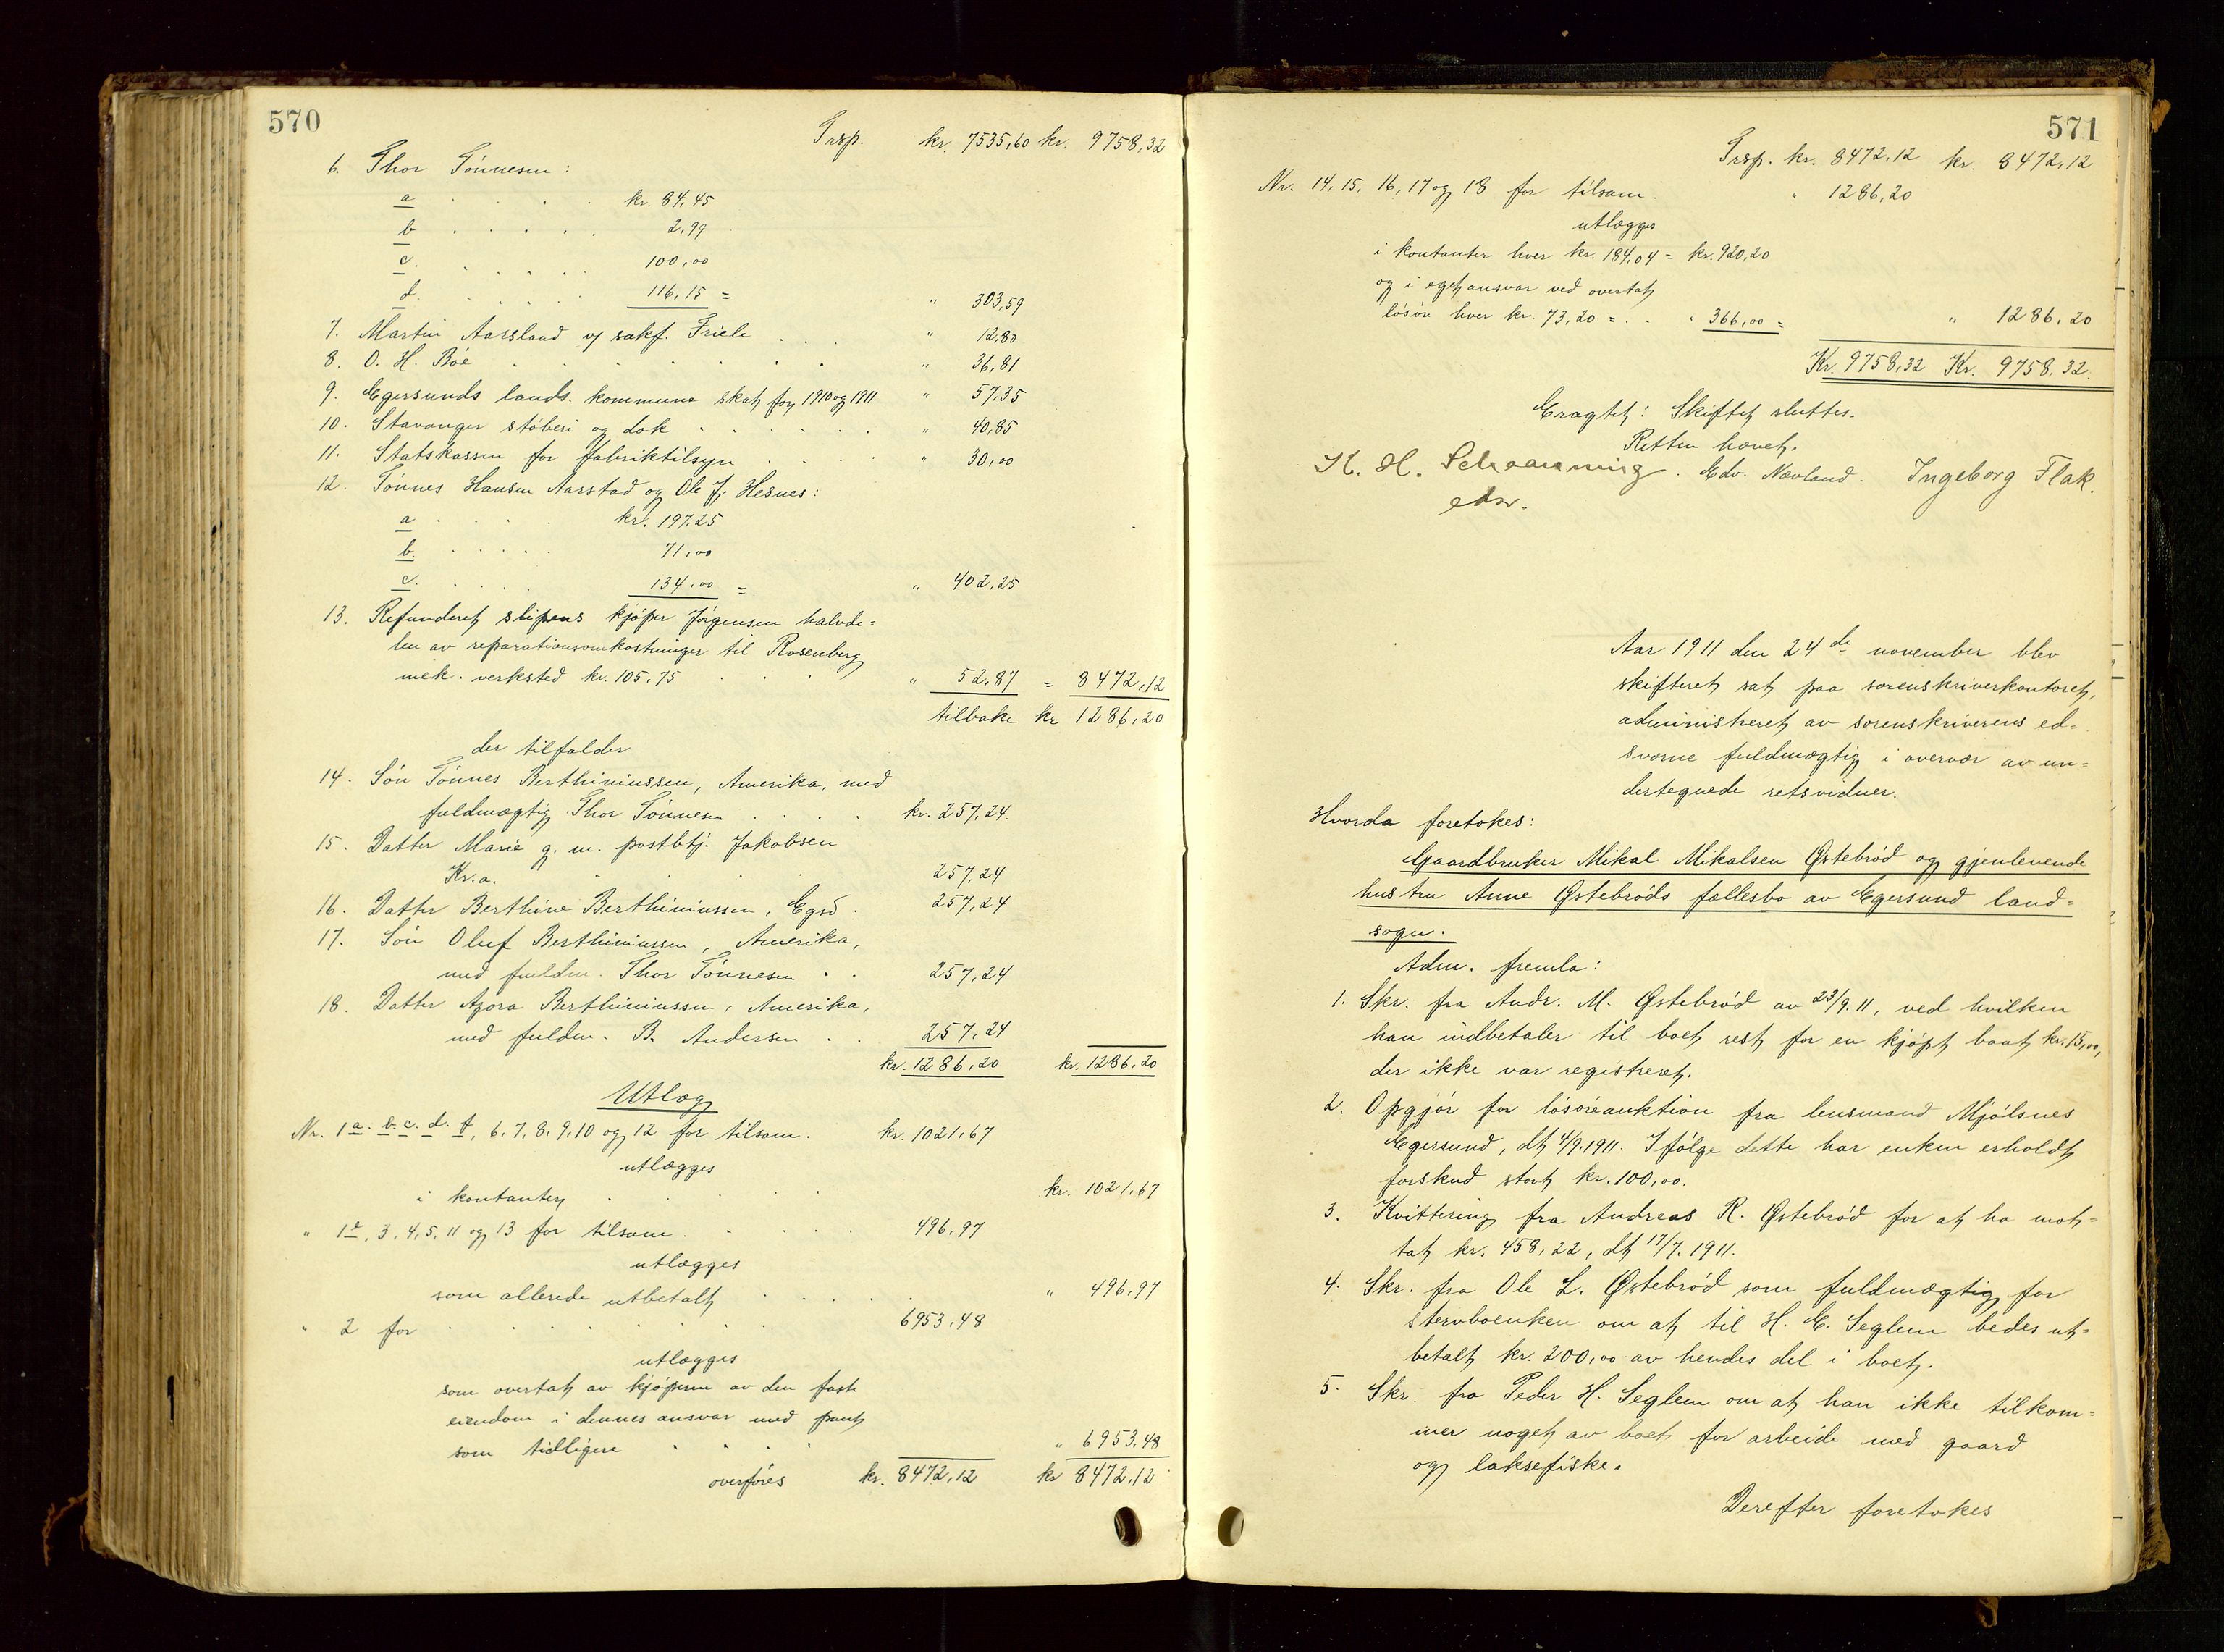 570
Trsp. kr. 7535,60 kr. 9758,32
6. Thor Tönnesen:
a . . . . kr. 84,45
b . . . . . 2,99
c. . . . . . 100,00
d. . . . . . 116,15 = " 303,59
7. Martin Aarsland v/ sakf. Friele . . . " 12,80
8. O. H. Böe . . . . . . " 36,81
9. Egersunds lands. kommune skat for 1910 og 1911 " 57,35
10. Stavanger stöberi og dok . . . . . . " 40,85
11. Statskassen for fabriktilsyn . . . . " 30,00
12. Tönnes Hansen Aarstad og Ole J. Hesnes:
a . . . . kr. 197,25
b. . . . . . 71,00
c. . . . . 134,00 = " 402,25
13. Refunderet slipens kjöper Jörgensen halvde=
len av reparationsomkostninger til Rosenberg
mek. verksted kr. 105,75 . . . . " 52,87 = 8472,12
tilbake kr 1286,20
der tilfalder
14. Sön Tönnes Berthiniussen, Amerika, med
fuldmægtig Thor Tönnesen . . . . kr. 257,24.
15. Datter Marie g. m. postbtj. Jakobsen
Kr.a. . . . . 257,24
16. Datter Berthine Berthiniussen, Egsd . 257,24
17. Sön Oluf Berthiniussen, Amerika,
med fuldm. Thor Tönnesen . . 257,24
18. Datter Agora Berthiniussen, Amerika,
med fuldm. B. Andersen . . 257,24
kr. 1286,20 kr. 1286,20
Utlæg
Nr. 1 a. b. c. d. f, 6, 7, 8, 9, 10 og 12 for tilsam. kr. 1021,67
utlægges
i kontanter . . . . kr. 1021,67
" 1 e, 3, 4, 5, 11 og 13 for tilsam. . . . . 496,97
utlægges
som allerede utbetalt . . . . . " 496,97
" 2 for . . . . . . . 6953,48
utlægges
som overtat av kjöperen av den faste
eiendom i dennes ansvar med pant
som tidligere . . . . " 6953,48
overföres kr. 8472,12 kr 8472,12
571
Trsp. kr. 8472,12 kr. 8472,12
Nr. 14, 15, 16, 17 og 18 for tilsam. " 1286,20
utlægges
i kontanter hver kr. 184,04 = kr. 920,20
og i eget ansvar ved overtat
lösöre hver kr. 73,20 = . . " 366,00 = " 1286,20
Kr. 9758,32 Kr. 9758,32.
Eragtet: Skiftet sluttes.
Retten hævet.
K. H. Schaanning. Edv. Nævland. Ingeborg Flak.
edsv.
Aar 1911 den 24de november blev
skifteret sat paa sorenskriverkontoret,
administreret av sorenskriverens ed=
svorne fuldmægtig i overvær av un=
dertegnede retsvidner.
Hvorda foretokes:
Gaardbruker Mikal Mikalsen Østebröd og gjenlevende
hustru Anne Østebröds fællesbo av Egersund land=
sogn.
Adm. fremla:
1. Skr. fra Andr. M. Østebröd av 23/9. 11, ved hvilken
han indbetaler til boet rest for en kjöpt baat kr. 15,00,
der ikke var registreret.
2. Opgjör for lösöreauktion fra lensmand Mjölsnes
Egersund, dt 4/9. 1911. Ifölge dette har enken erholdt
forskud stort kr. 100,00.
3. Kvittering fra Andreas R. Østebröd for at ha mot=
tat kr. 458,22, dt 17/7. 1911.
4. Skr. fra Ole L. Østebröd som fuldmægtig for
stervboenken om at til H. E. Seglem bedes ut=
betalt kr. 200,00 av hendes del i boet.
5. Skr. fra Peder H. Seglem om at han ikke tilkom=
mer noget av boet for arbeide med gaard
og laksefiske.
Derefter foretokes